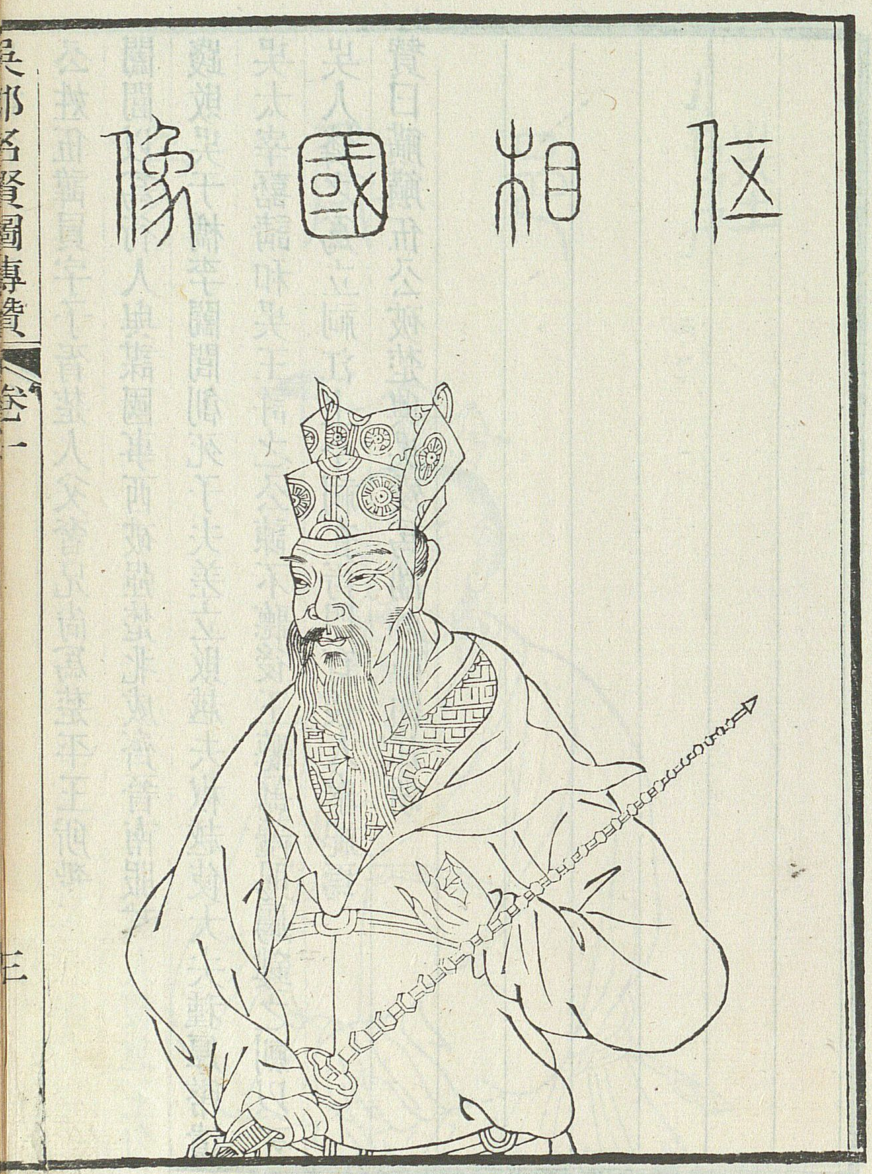 伍相國像
吳郡名賢圖傳贊
卷一
三